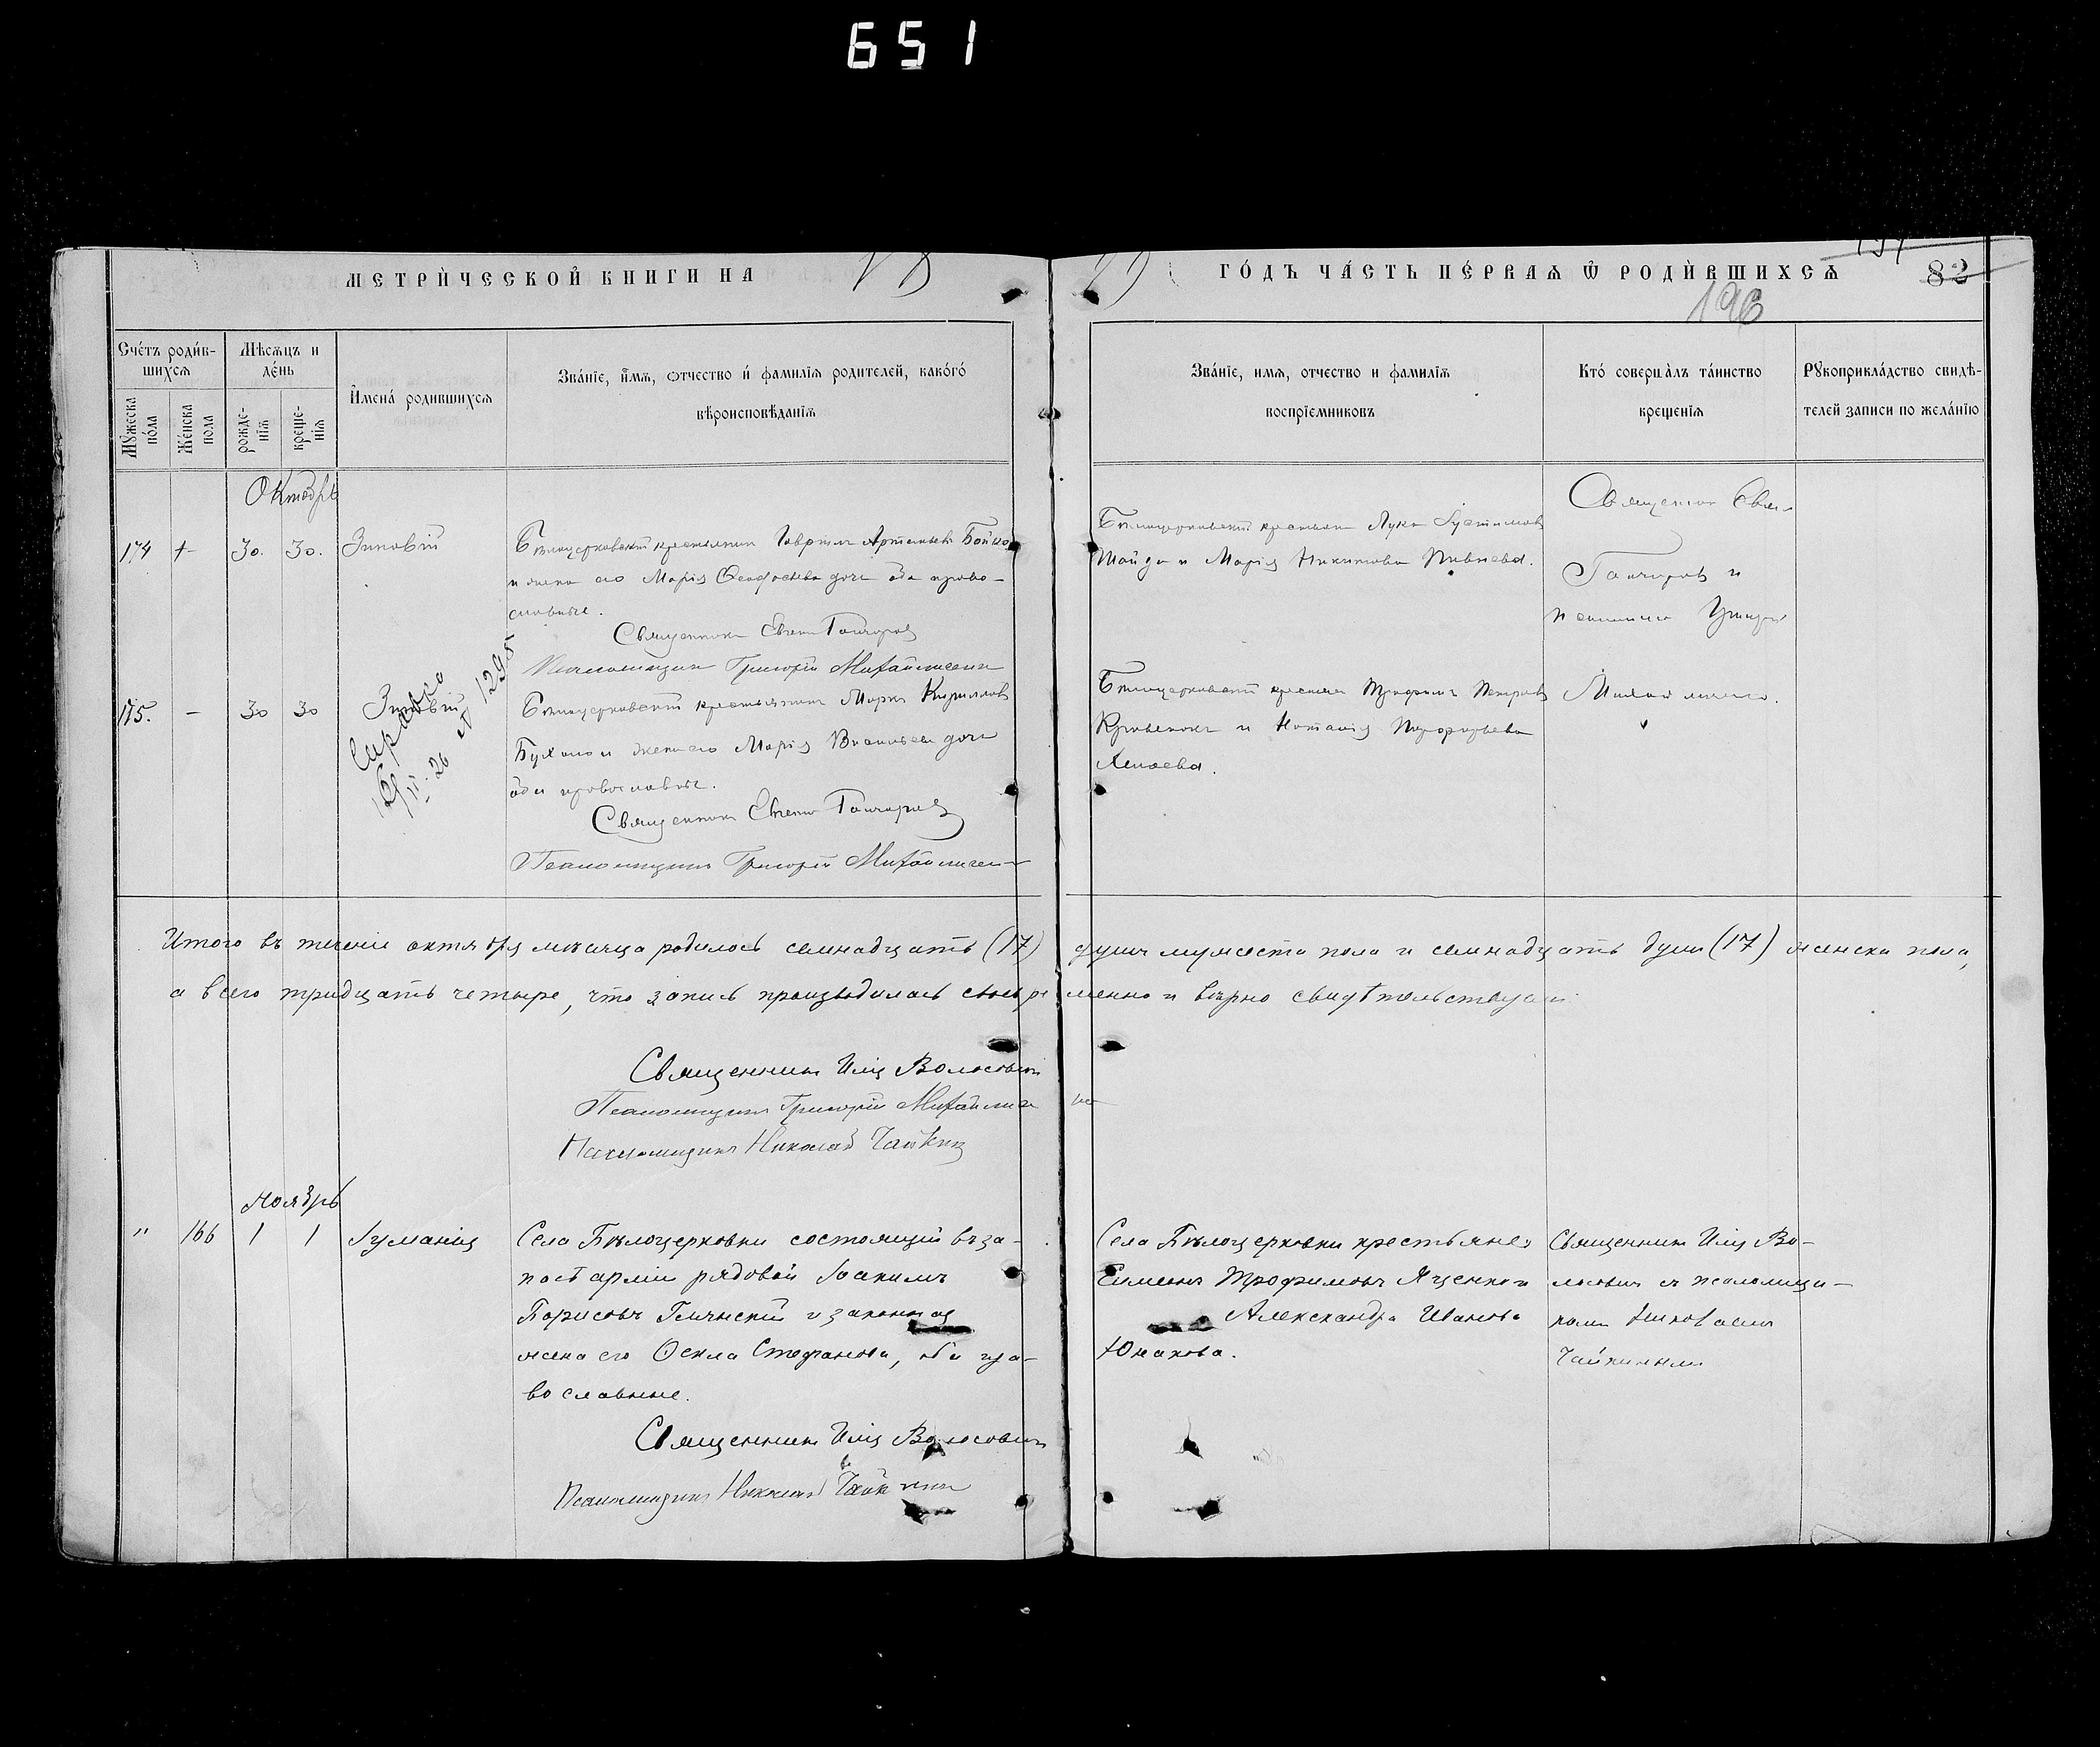 651
МЕТРИ́ЧЕСКОЙ КНИГИ НА 18
99 ГО́ДЪ ЧА́СТЬ ПЕ́РВАѦ Ѡ҆ РОДИ́ВШИХСѦ
82
196
Сче́тъ роди́в-
шихсѧ
Мꙋ́жеска по́ла
Же́нска пола
Мѣ́сѧцъ и де́нь
рожде-нїѧ
креще-нїѧ
И҆мена́ родившихсѧ
Зва́нїе, и҆́мѧ, ѻтчество и́ фамилїѧ родителей, како́го́
вѣроисповѣ́данїѧ
Зва́нїе, имѧ, отчество и фамилїѧ
воспрїемниковъ
Кто́ соверша̀лъ та́инство
крещенїѧ
Рꙋкоприкла́дство свидѣ́-
телей записи по жела́нїю
Октябрь
174 30. 30. Зиновій
Бѣлоцерковскій крестьянинъ Гавріилъ Артемьевъ Бойко
и жена его Марія Феодосьева дочь оба право-
славные.
Священникъ Евгеній Гончаровъ
Псаломщикъ Григорій Михайличенко
Бѣлоцерковскій крестьянинъ Лука Іустиновъ
Шайда и Марія Никитова Пивнева.
Священникъ
Гончаровъ и
псаломщикъ
175. - 30 30 Зиновій
Справка
19/IV-26 № 1295
Бѣлоцерковскій крестьянинъ Марко Кирилловъ
и жена его Марія Васильева дочь
оба православные.
Священникъ Евгеній Гончаровъ
Псаломщикъ Григорій Михайличенко
Бѣлоцерковскій крестьянинъ Трофимъ Петровъ
и Наталія Порфирьева
Михайличенко.
Итого въ теченіе октября мѣсяца родилось семнадцать (17) душъ мужеска пола и семнадцать душъ (17) женска пола,
а всего тридцать четыре, что запись производилась своевременно и вѣрно свидѣтельствуемъ:
Священникъ Илія Волосовичъ
Псаломщикъ Григорій Михайличенко
Псаломщикъ Николай Чайкинъ
Ноябрь
" 166 1 1 Іуліанія
Села Бѣлоцерковки состоящій въ за-
пасѣ арміи рядовой Іоакимъ
Борисовъ и законная
жена его Фекла Стефанова, оба пра-
вославные.
Священникъ Илія Волосовичъ
Псаломщикъ Николай Чайкинъ
Села Бѣлоцерковки крестьяне:
Симеонъ Трофимовъ Яценко и
Александра Иванова
Юнакова.
Священникъ Илія Во-
лосовичъ съ псаломщи-
комъ Николаемъ
Чайкинымъ